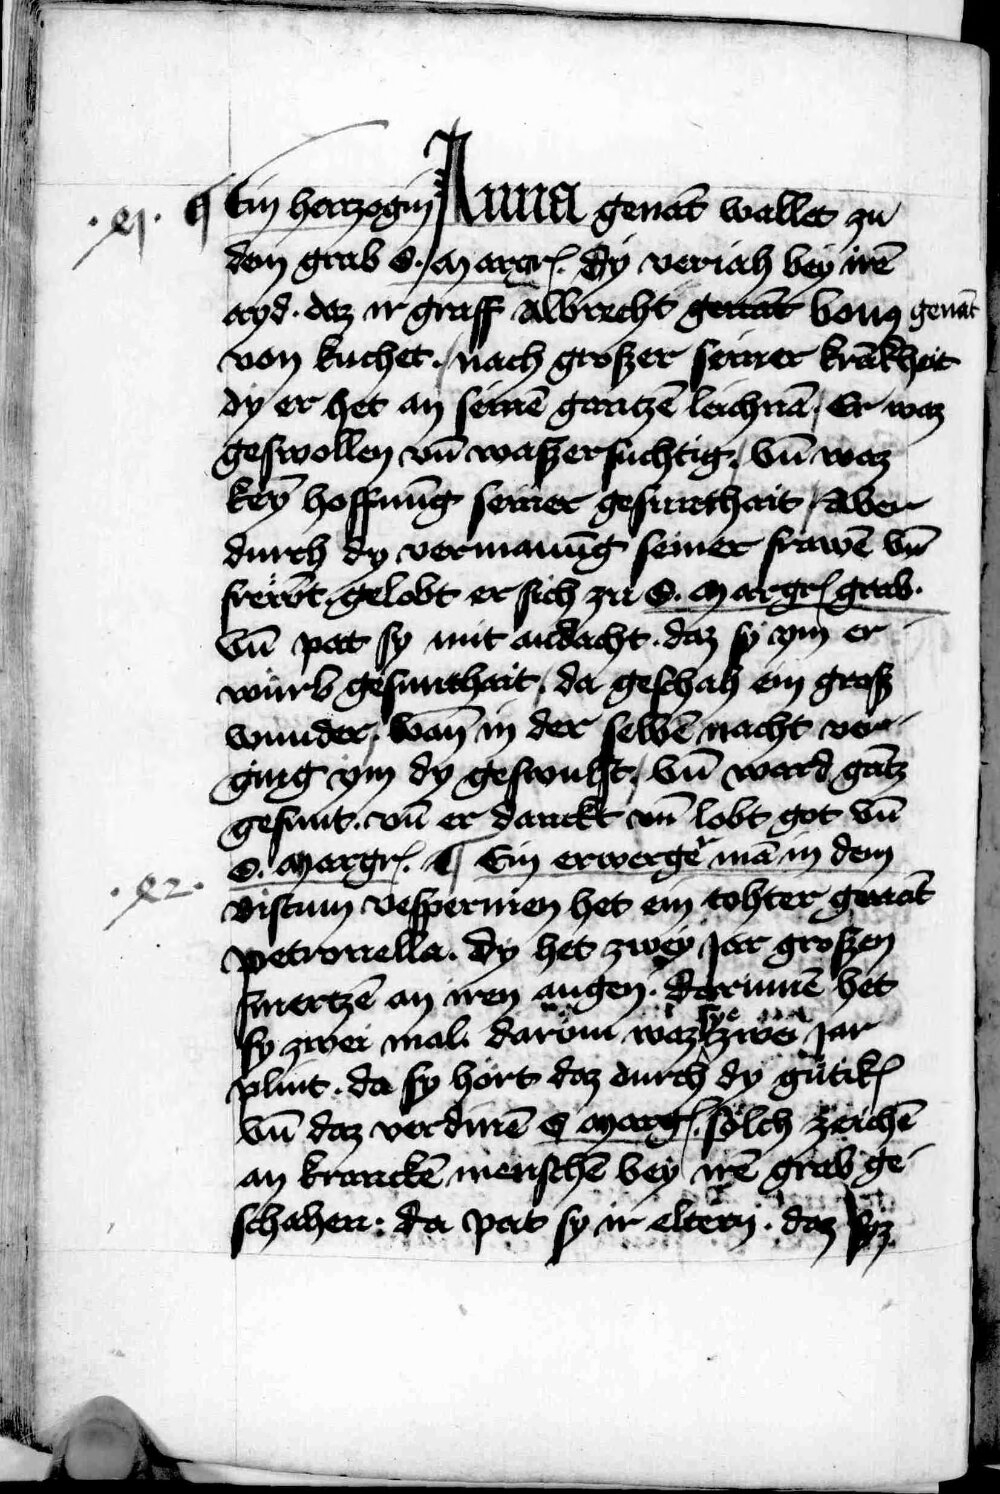 .91. ¶ Ein hertzogin Anna genāt wallet zu
dem grab S. Margr. dy veriah bey irē
ayd. daz ir graff Albrecht genāt bonꝰ genāt
von kuchet. nach groszer seiner krākheit
dy er het an seinē gantzē leichnā. Er waz
geswollen vn̄ waszersuchtig. Vn̄ waz
key hoffnūg seiner gesunthait. Aber
durch dy vermanūg seiner frawē vn̄
frewt. gelobt er sich zu S. Margr grab.
Vn̄ pat sy mit andacht. daz sy ym er
wurb gesunthait. da geschah ein grosz
wunder. wan in der selbē nacht ver
ging ym dy geswulst. Vn̄ ward gātz
gesunt. vn̄ er danckt vn̄ lobt got vn̄
S. Margr. ¶ Ein erwergē man in dem
.92. Bistum vesspermen het ein tohter genāt
petronella. Dy het zwey Jar groszen
smertzē an iren augen. darinnē het
sy zwei mal. darūm waz sye zwei Jar
plint. da sy hört daz durch dy gütik
Vn̄ daz verdinē S Marg. sölch zeichē
an kranckē menschē bey irē grab ge
schahen: da pat sy ir eltern. daz syz